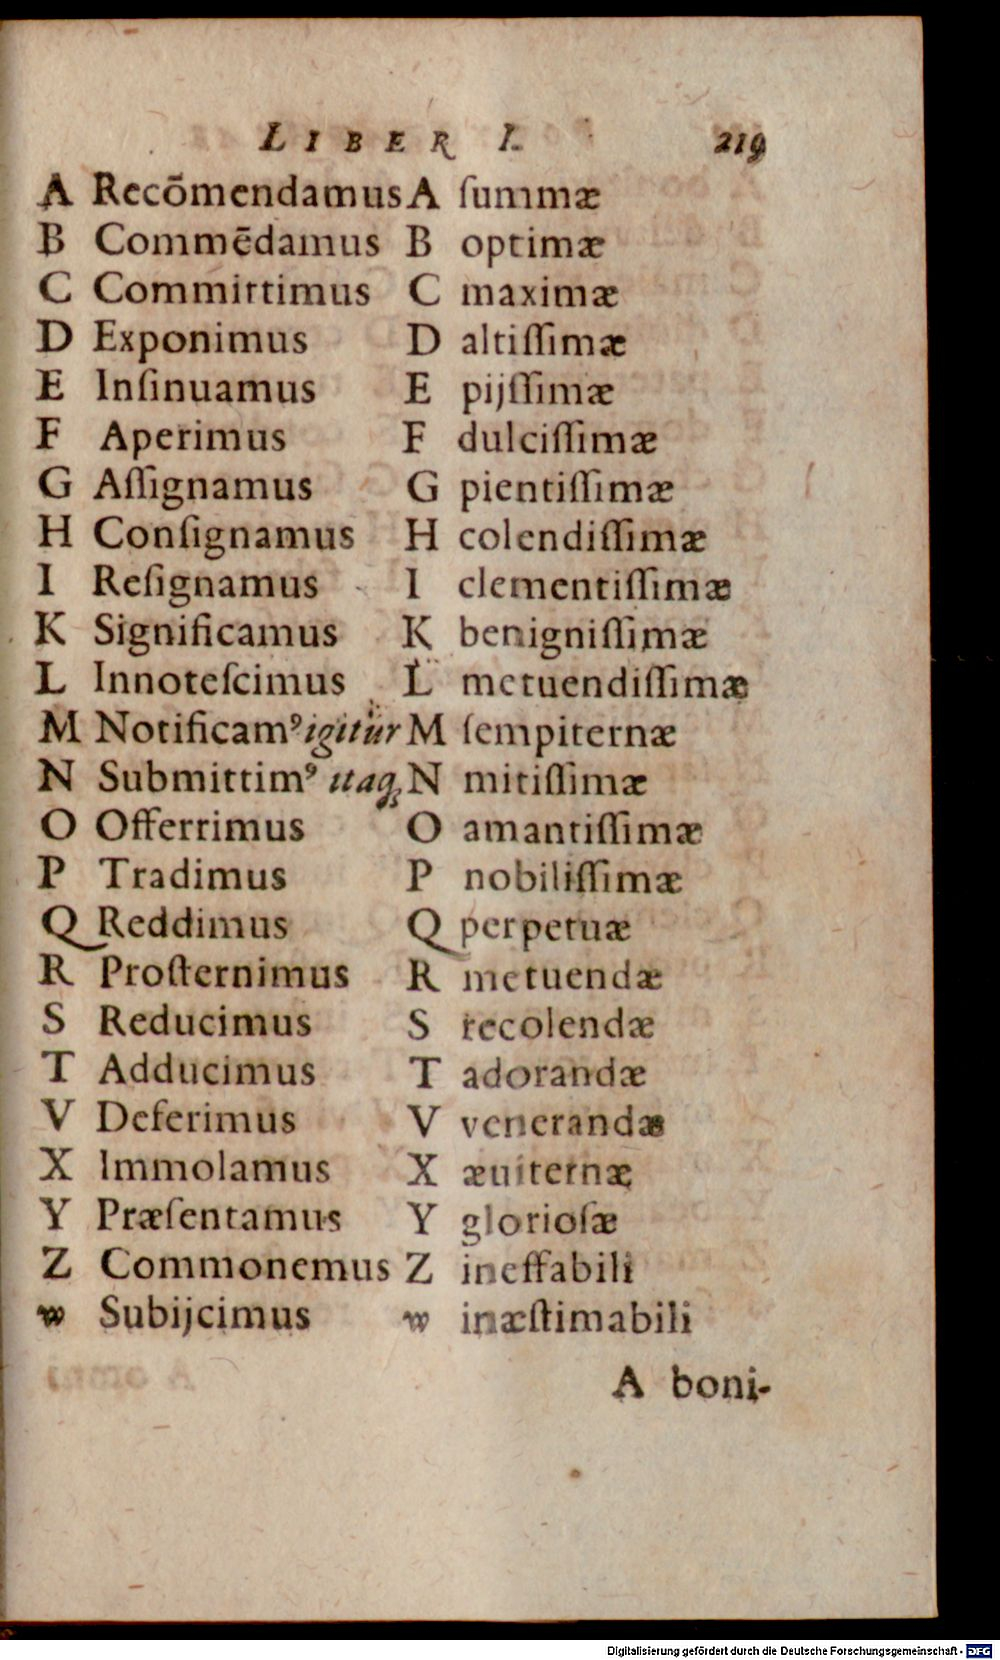 LIBER I. 219
A Recōmendamus A ſummæ
B Commēdamus B optimæ
C Committimus C maximæ
D Exponimus D altiſſimæ
E Inſinuamus E pijſſimæ
F Aperimus F dulciſſimæ
G Aſſignamus G pientiſſimæ
H Conſignamus H colendiſſimæ
I Reſignamus I clementiſſimæ
K Significamus K benigniſſimæ
L Innoteſcimus L metuendiſſimæ
M Notificamꝰ igitur M ſempiternæ
N Submittimꝰ itaq; N mitiſſimæ
O Offerrimus O amantiſſimæ
P Tradimus P nobiliſſimæ
Q Reddimus Q perpetuæ
R Proſternimus R metuendæ
S Reducimus S recolendæ
T Adducimus T adorandæ
V Deferimus V venerandæ
X Immolamus X æuiternæ
Y Præſentamus Y glorioſæ
Z Commonemus Z ineffabili
w Subijcimus w inæſtimabili
A boni-
Digitalisierung gefördert durch die Deutsche Forschungsgemeinschaft - DFG